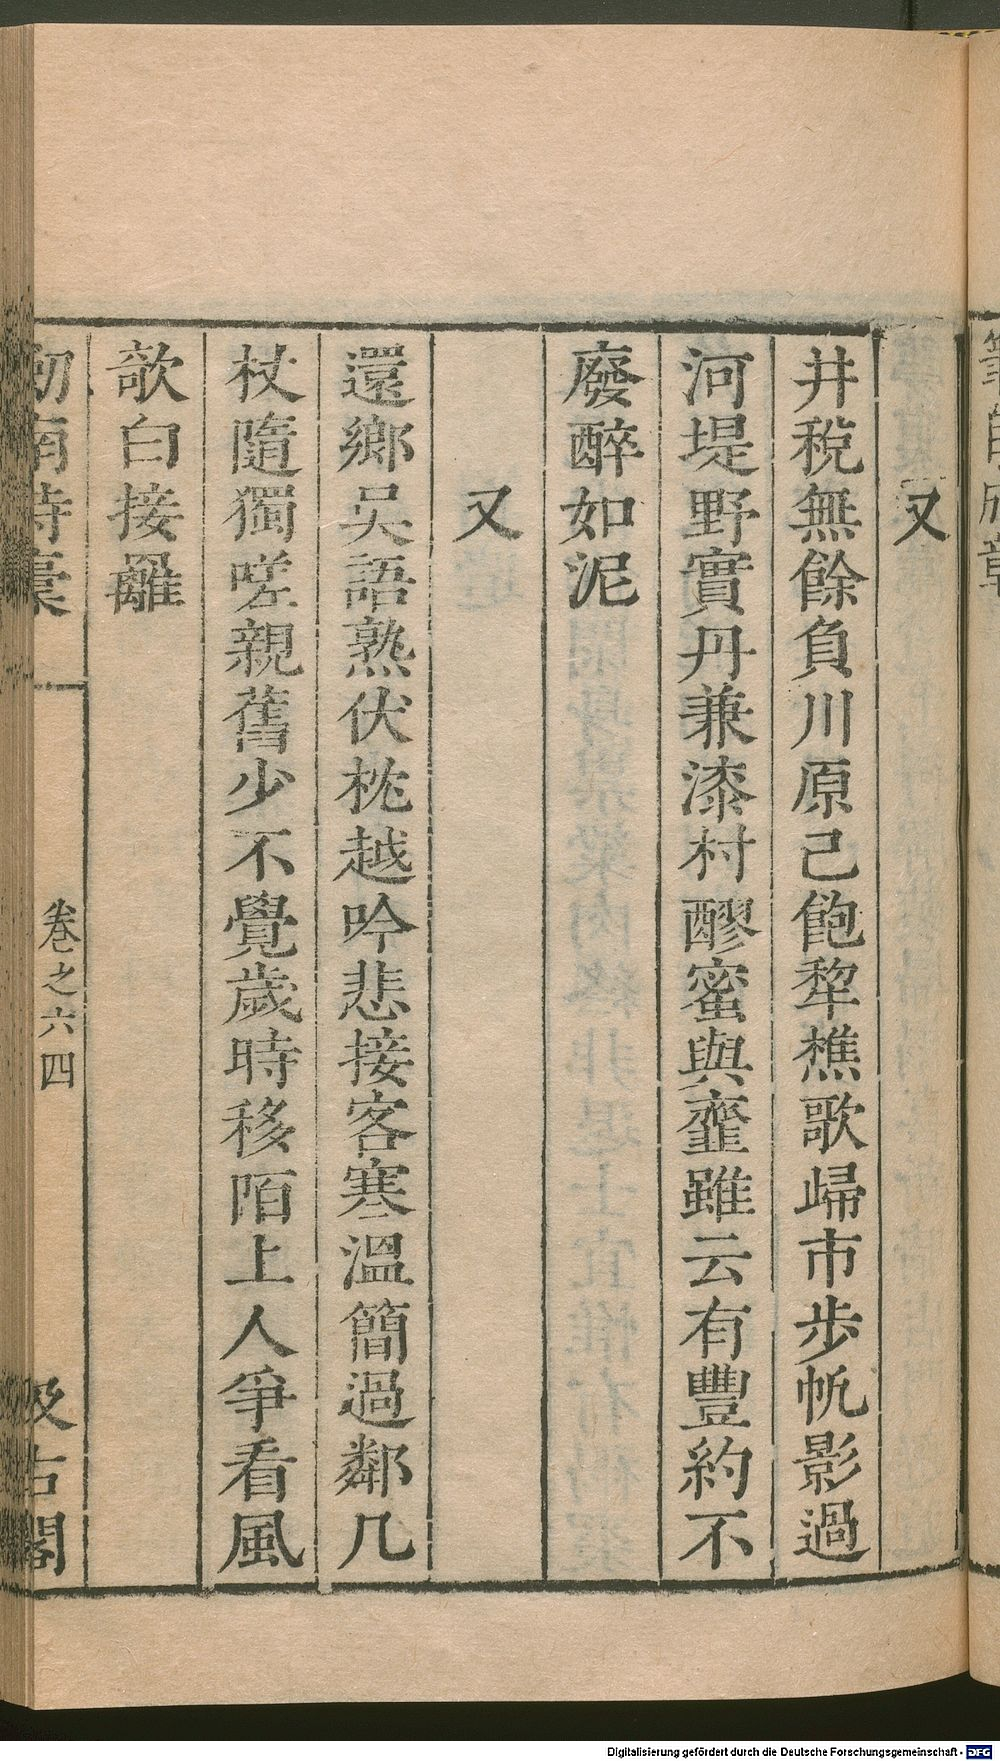 又
井稅無餘負川原已飽犂樵歌歸市步帆影過
河堤野實丹兼漆村醪蜜與虀雖云有豐約不
廢醉如泥
又
還鄉吴語熟伏枕越吟悲接客寒溫簡過鄰几
杖隨獨嗟親舊少不覺歲時移陌上人爭看風
欹白接䍦
劒南詩稾
卷之六四
汲古閣
Digitalisierung gefördert durch die Deutsche Forschungsgemeinschaft - DFG